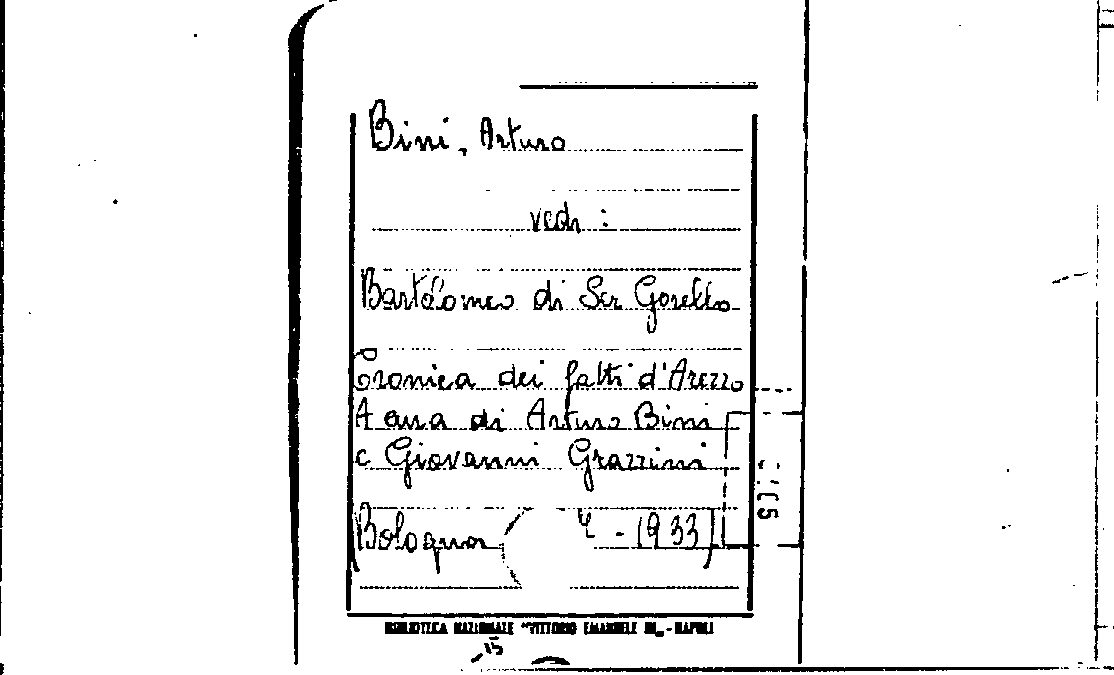 Bini, Arturo
vedi :
Bartolomeo di Ser Gorello
Cronica dei fatti d'Arezzo
A cura di Arturo Bini
e Giovanni Grazzini
(Bologna - 1933)
BIBLIOTECA NAZIONALE "VITTORIO EMANUELE III" - NAPOLI
15